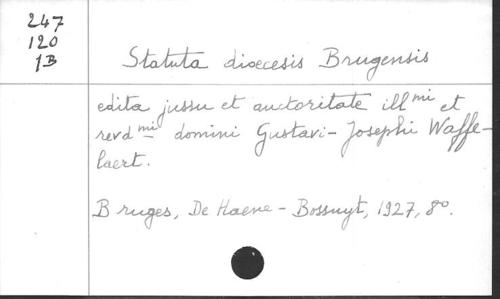 247
120
1B
Statuta dioecesis Brugensis
edita jussu et auctoritate illmi et
revdmi domini Gustavi-Josephi Waffe-
laert.
Bruges, De Haene-Bossuyt, 1927, 8o.